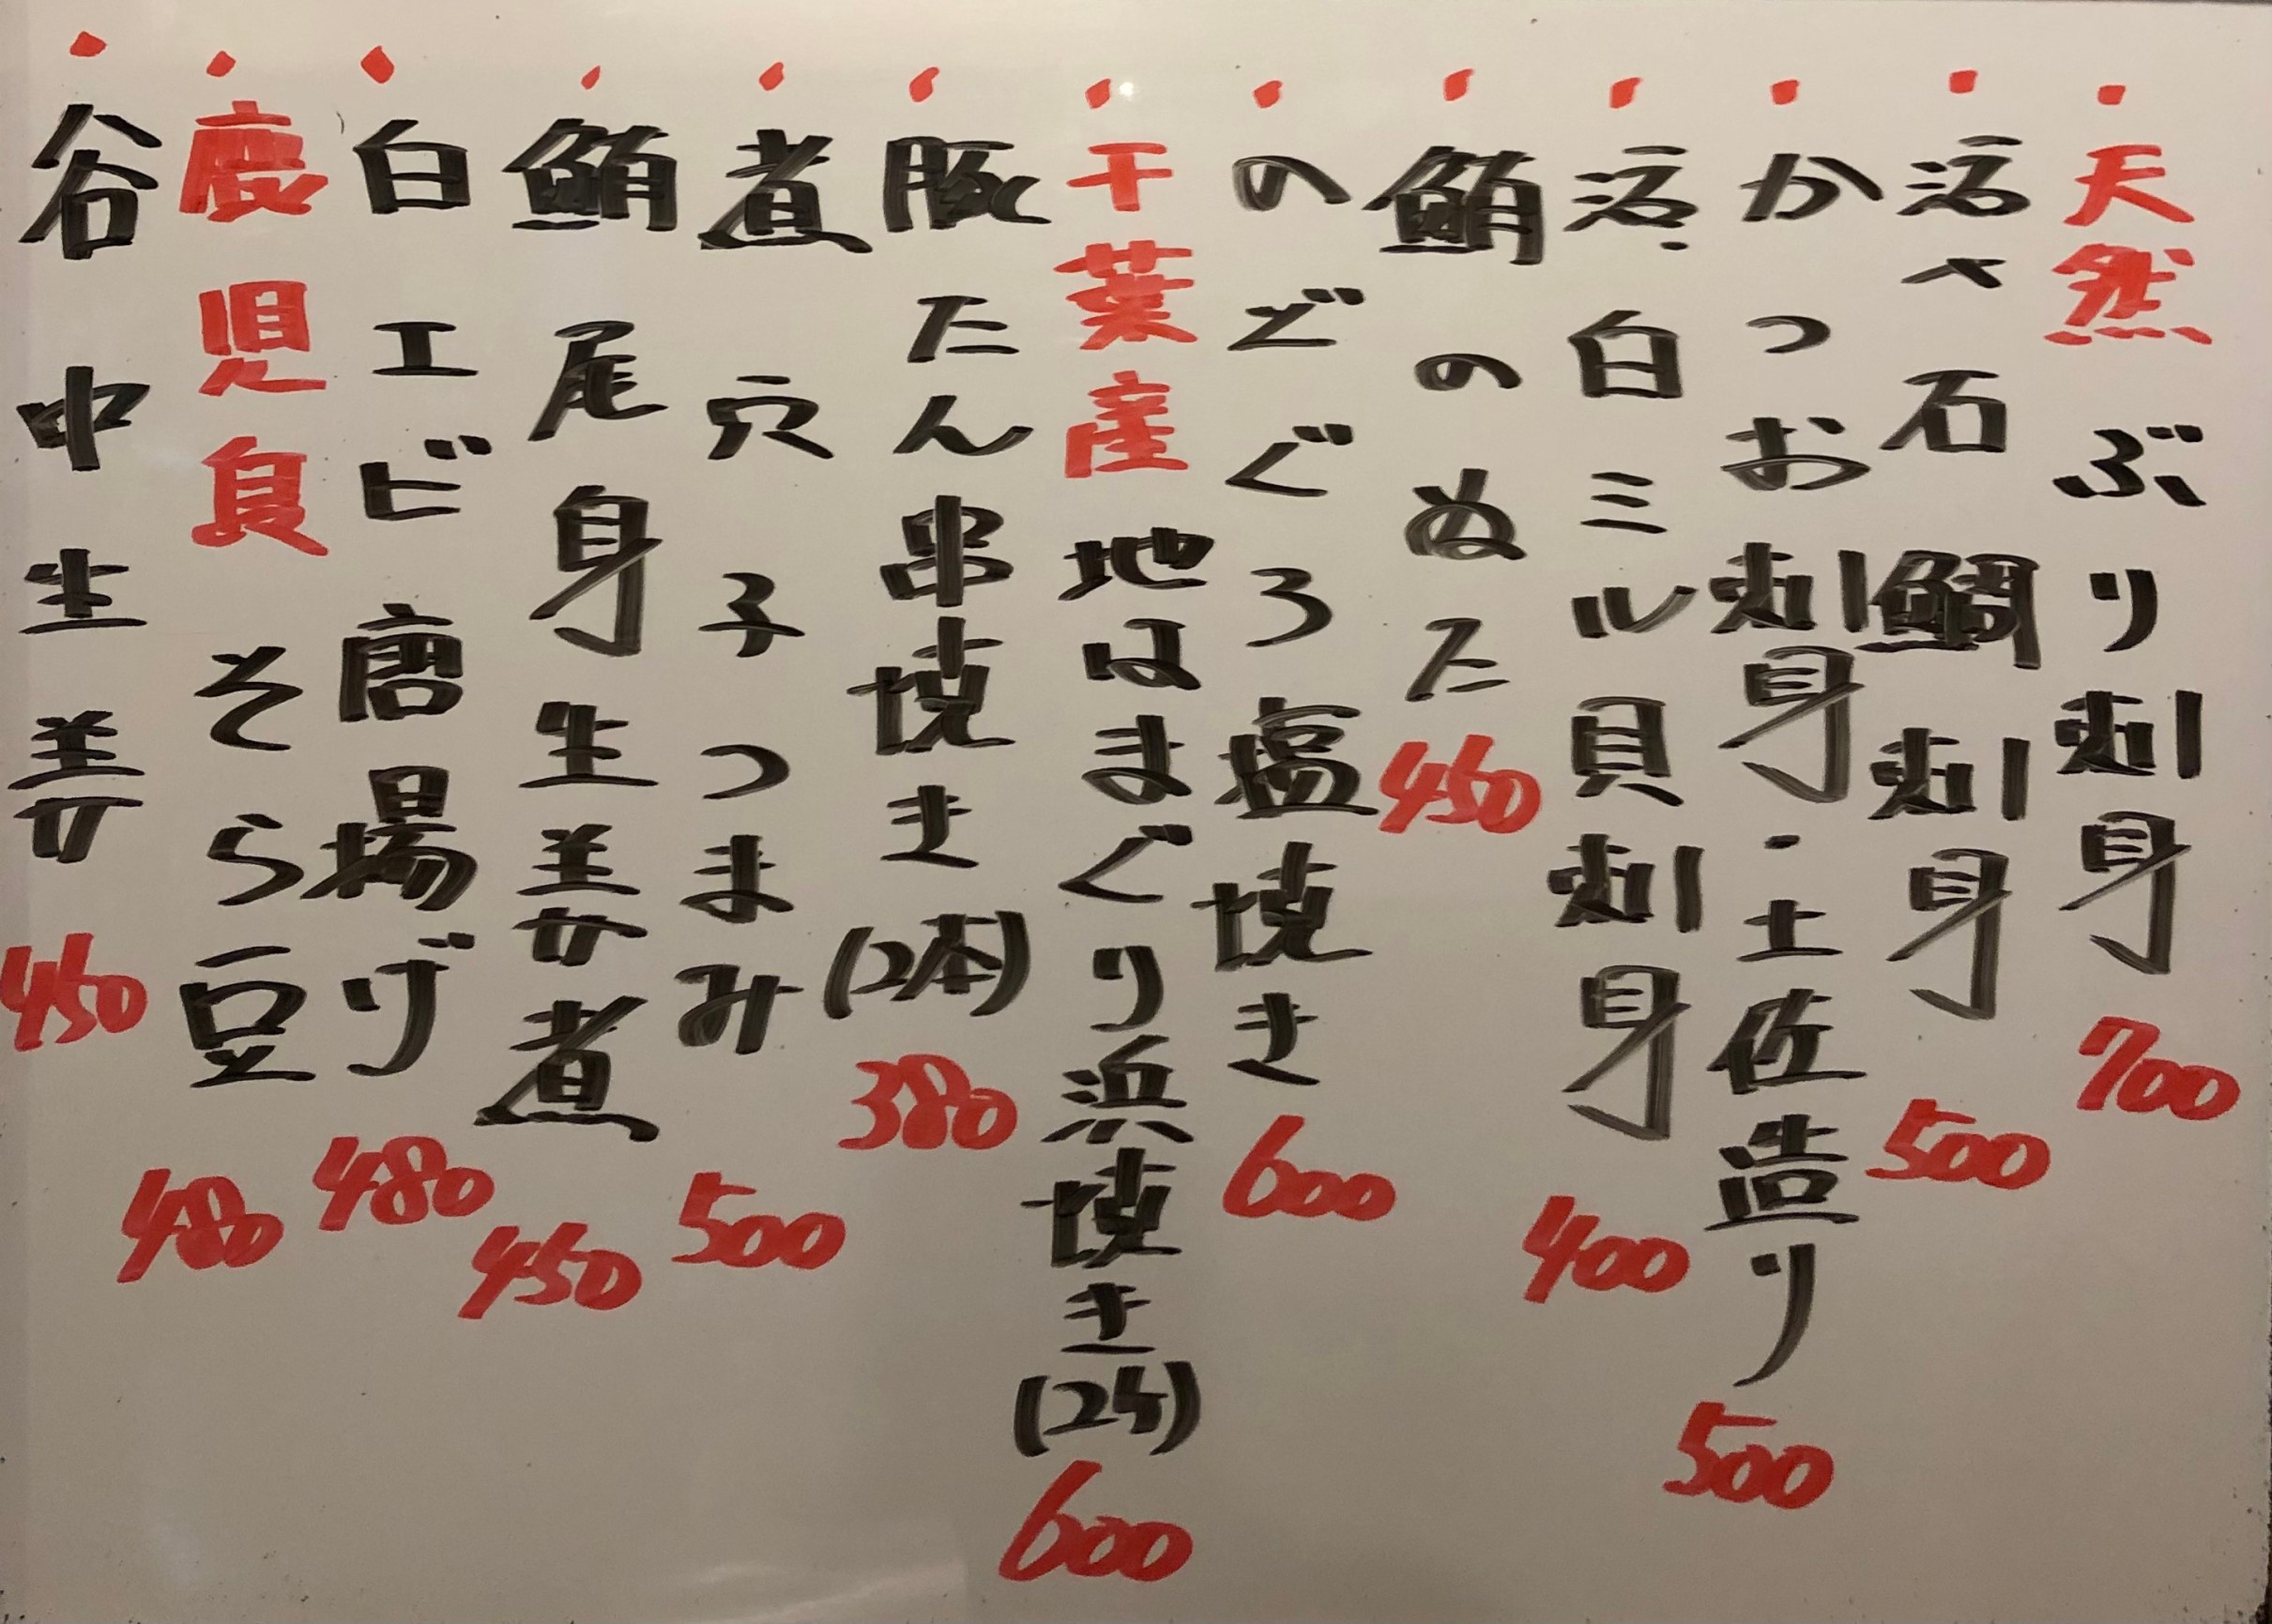 ・天然ぶり刺身 700
・活〆石鯛刺身 500
・かつお刺身・土佐造り 500
・活白ミル貝刺身 400
・鮪のぬた 450
・のどぐろ塩焼き 600
・千葉産地はまぐり浜焼き(2ケ) 600
・豚たん串焼き(2本) 380
・煮穴子つまみ 500
・鮪尾身生姜煮 450
・白エビ唐揚げ 480
・鹿児島そら豆 480
・谷中生姜 450